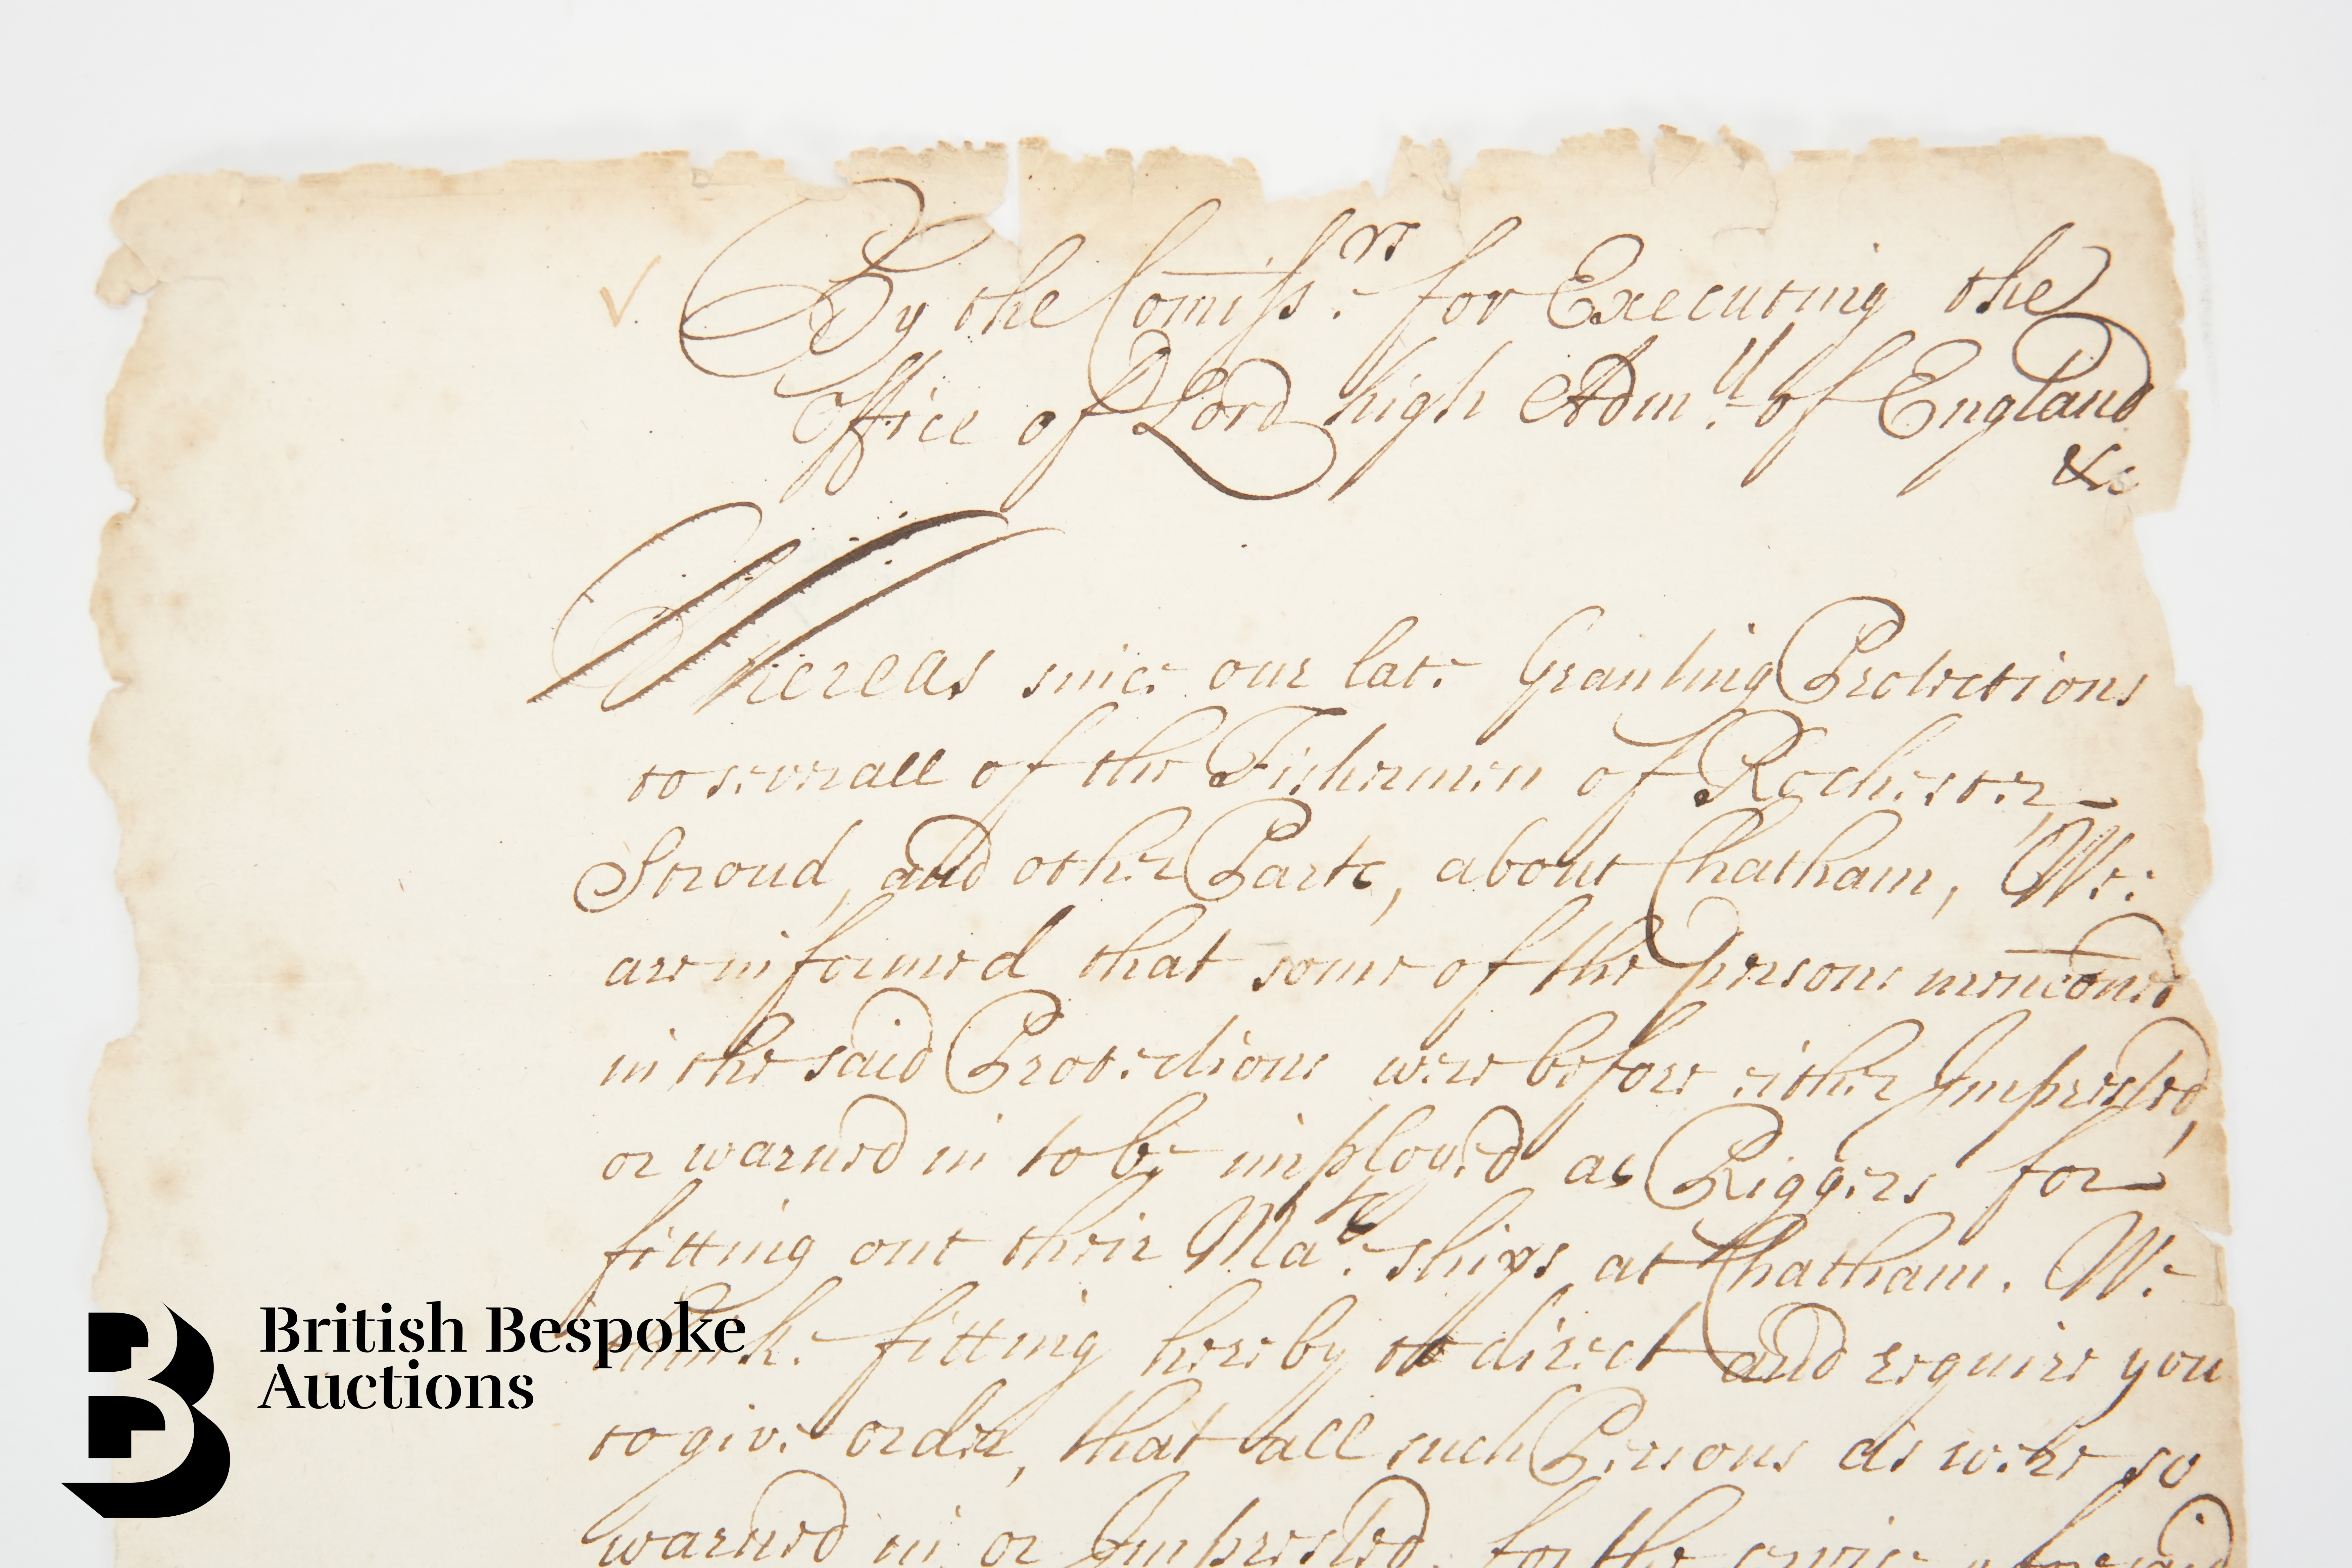 By the Comiss.rs for Executing the
Office of Lord high Adm.ll of England
&c
Whereas since our late Granting Protections
to severall of the Fishermen of Rochester
Stroud, and other Parts, about Chatham, We
are informed that some of the persons menconed
in the said Protections were before either Imprested,
or warned in to be imployed as Riggers for
fitting out their Ma.ts ships at Chatham. We
think fitting hereby to direct and require you
to give order, that all such Persons as were so
warned in or Imprested, for the service aforesaid
British Bespoke
Auctions